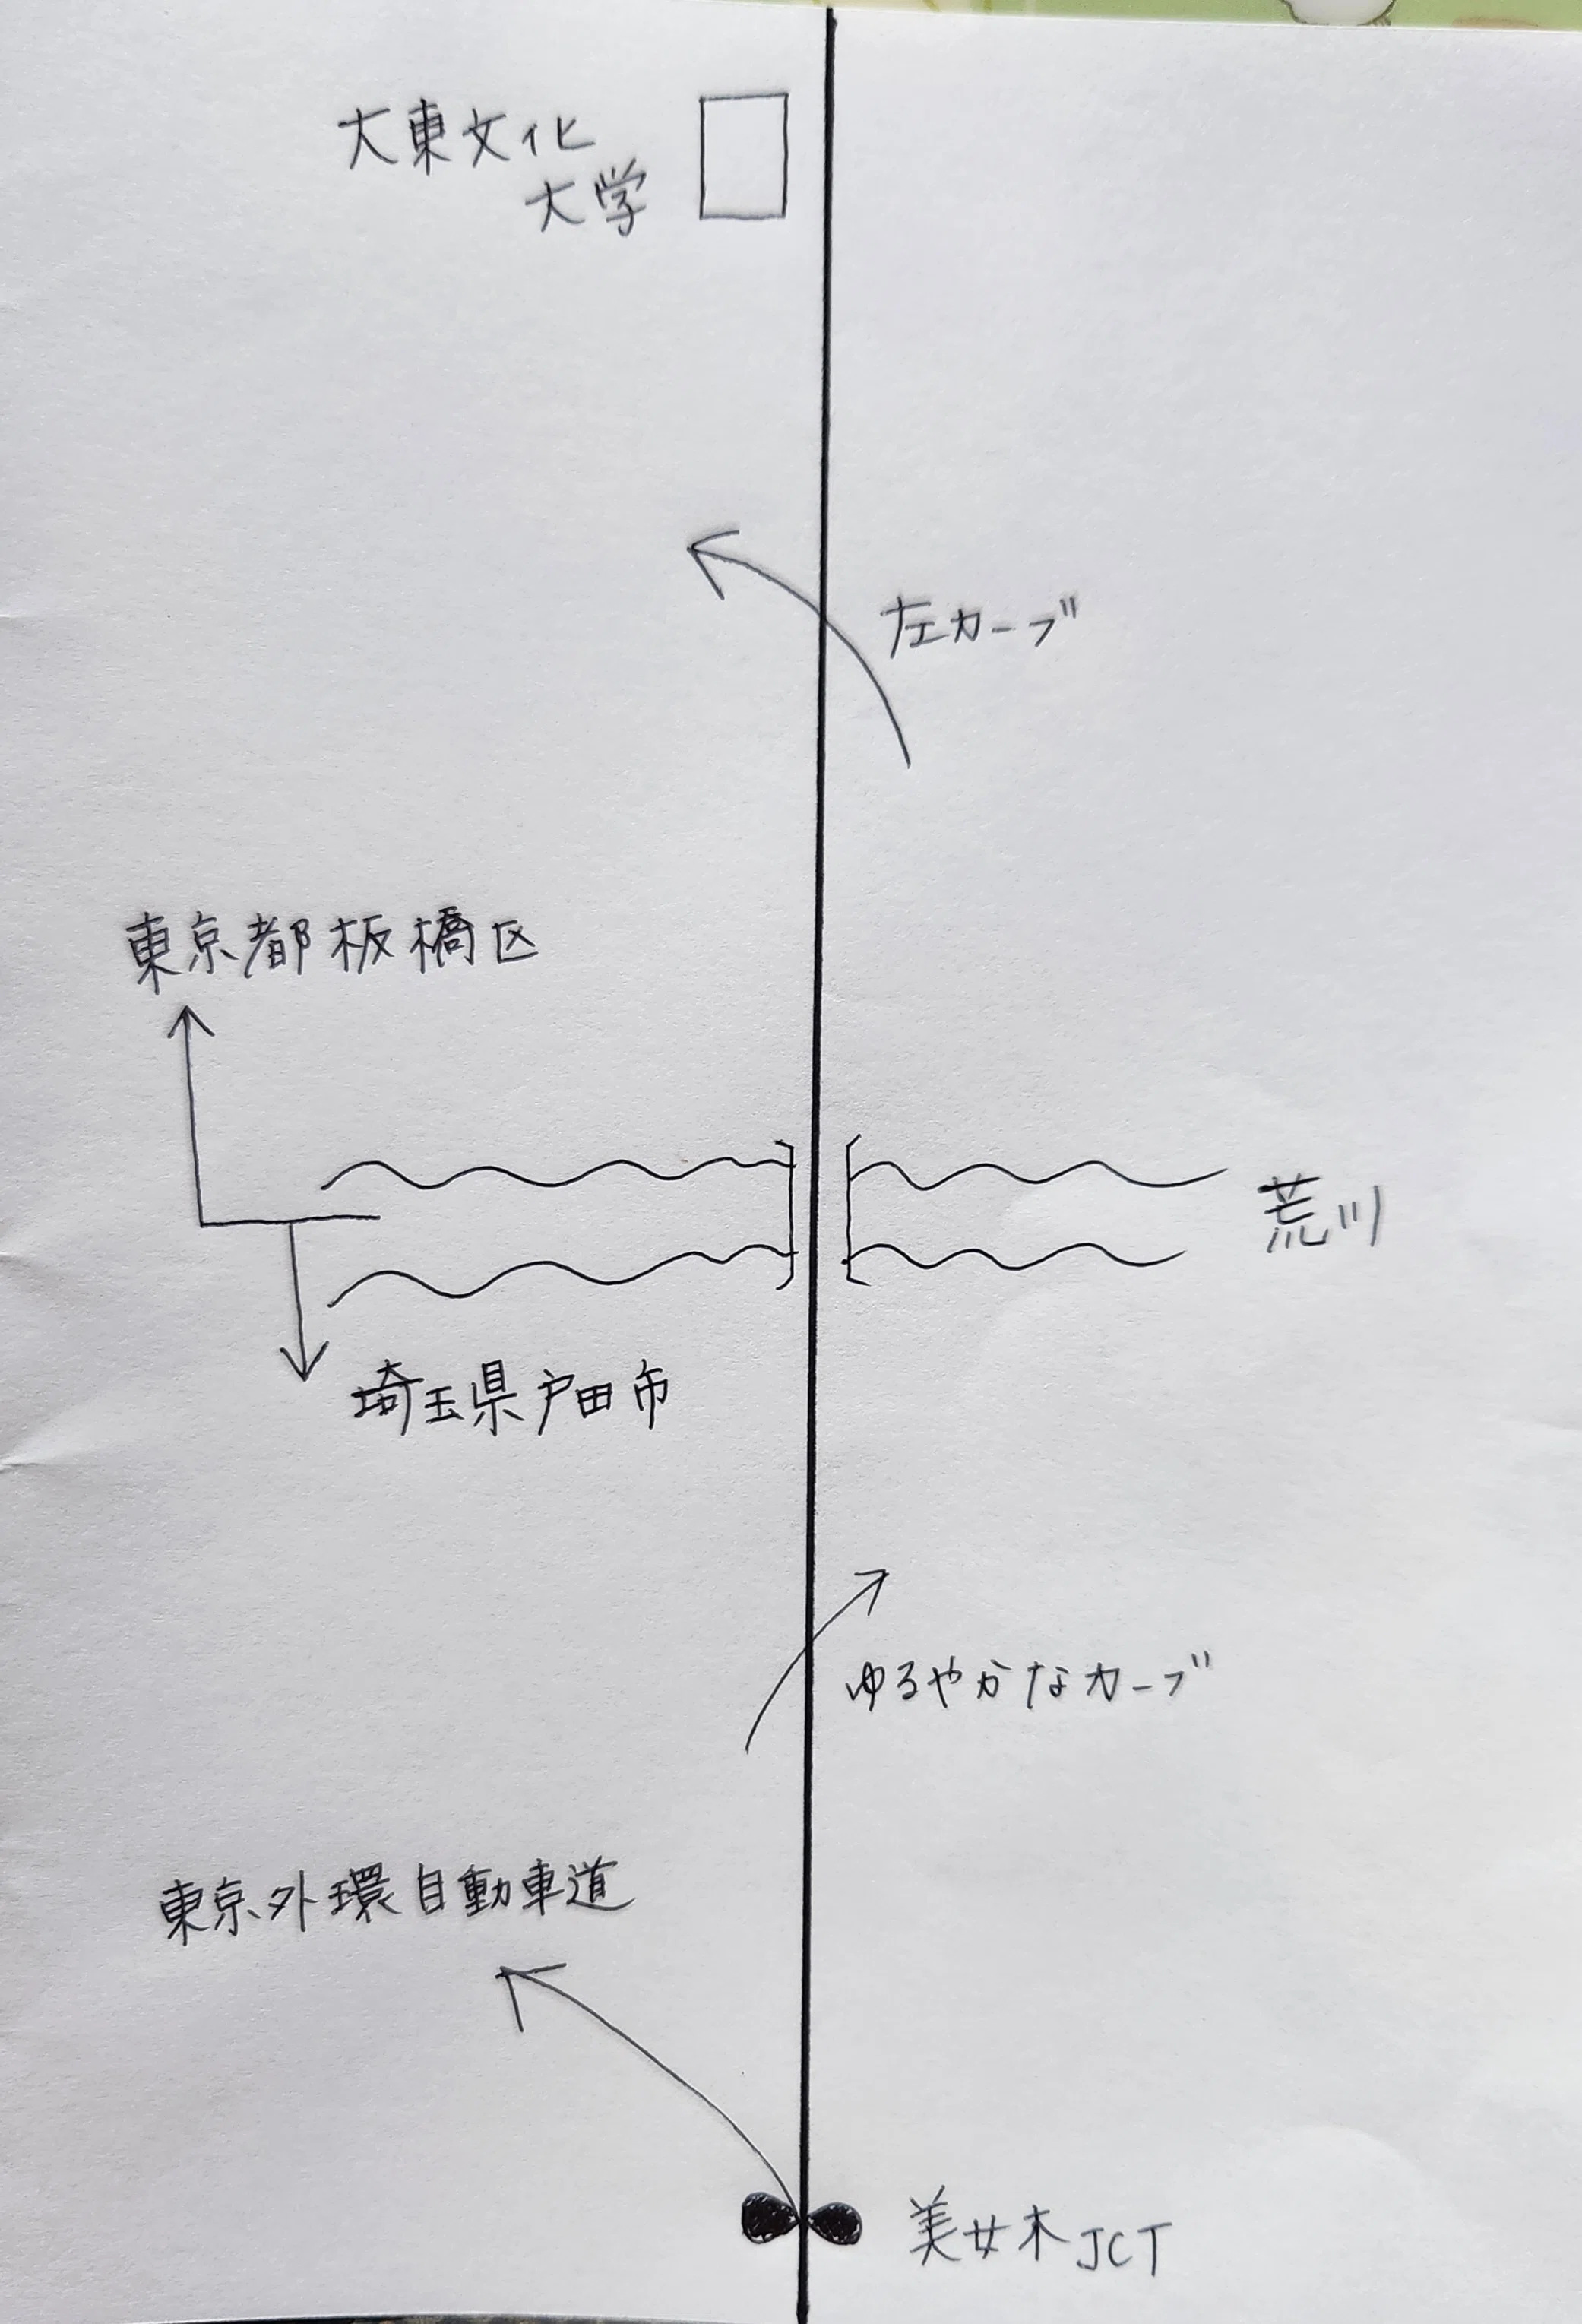 大東文化
大学
左カーブ
東京都板橋区
荒川
埼玉県戸田市
ゆるやかなカーブ
東京外環自動車道
美女木JCT